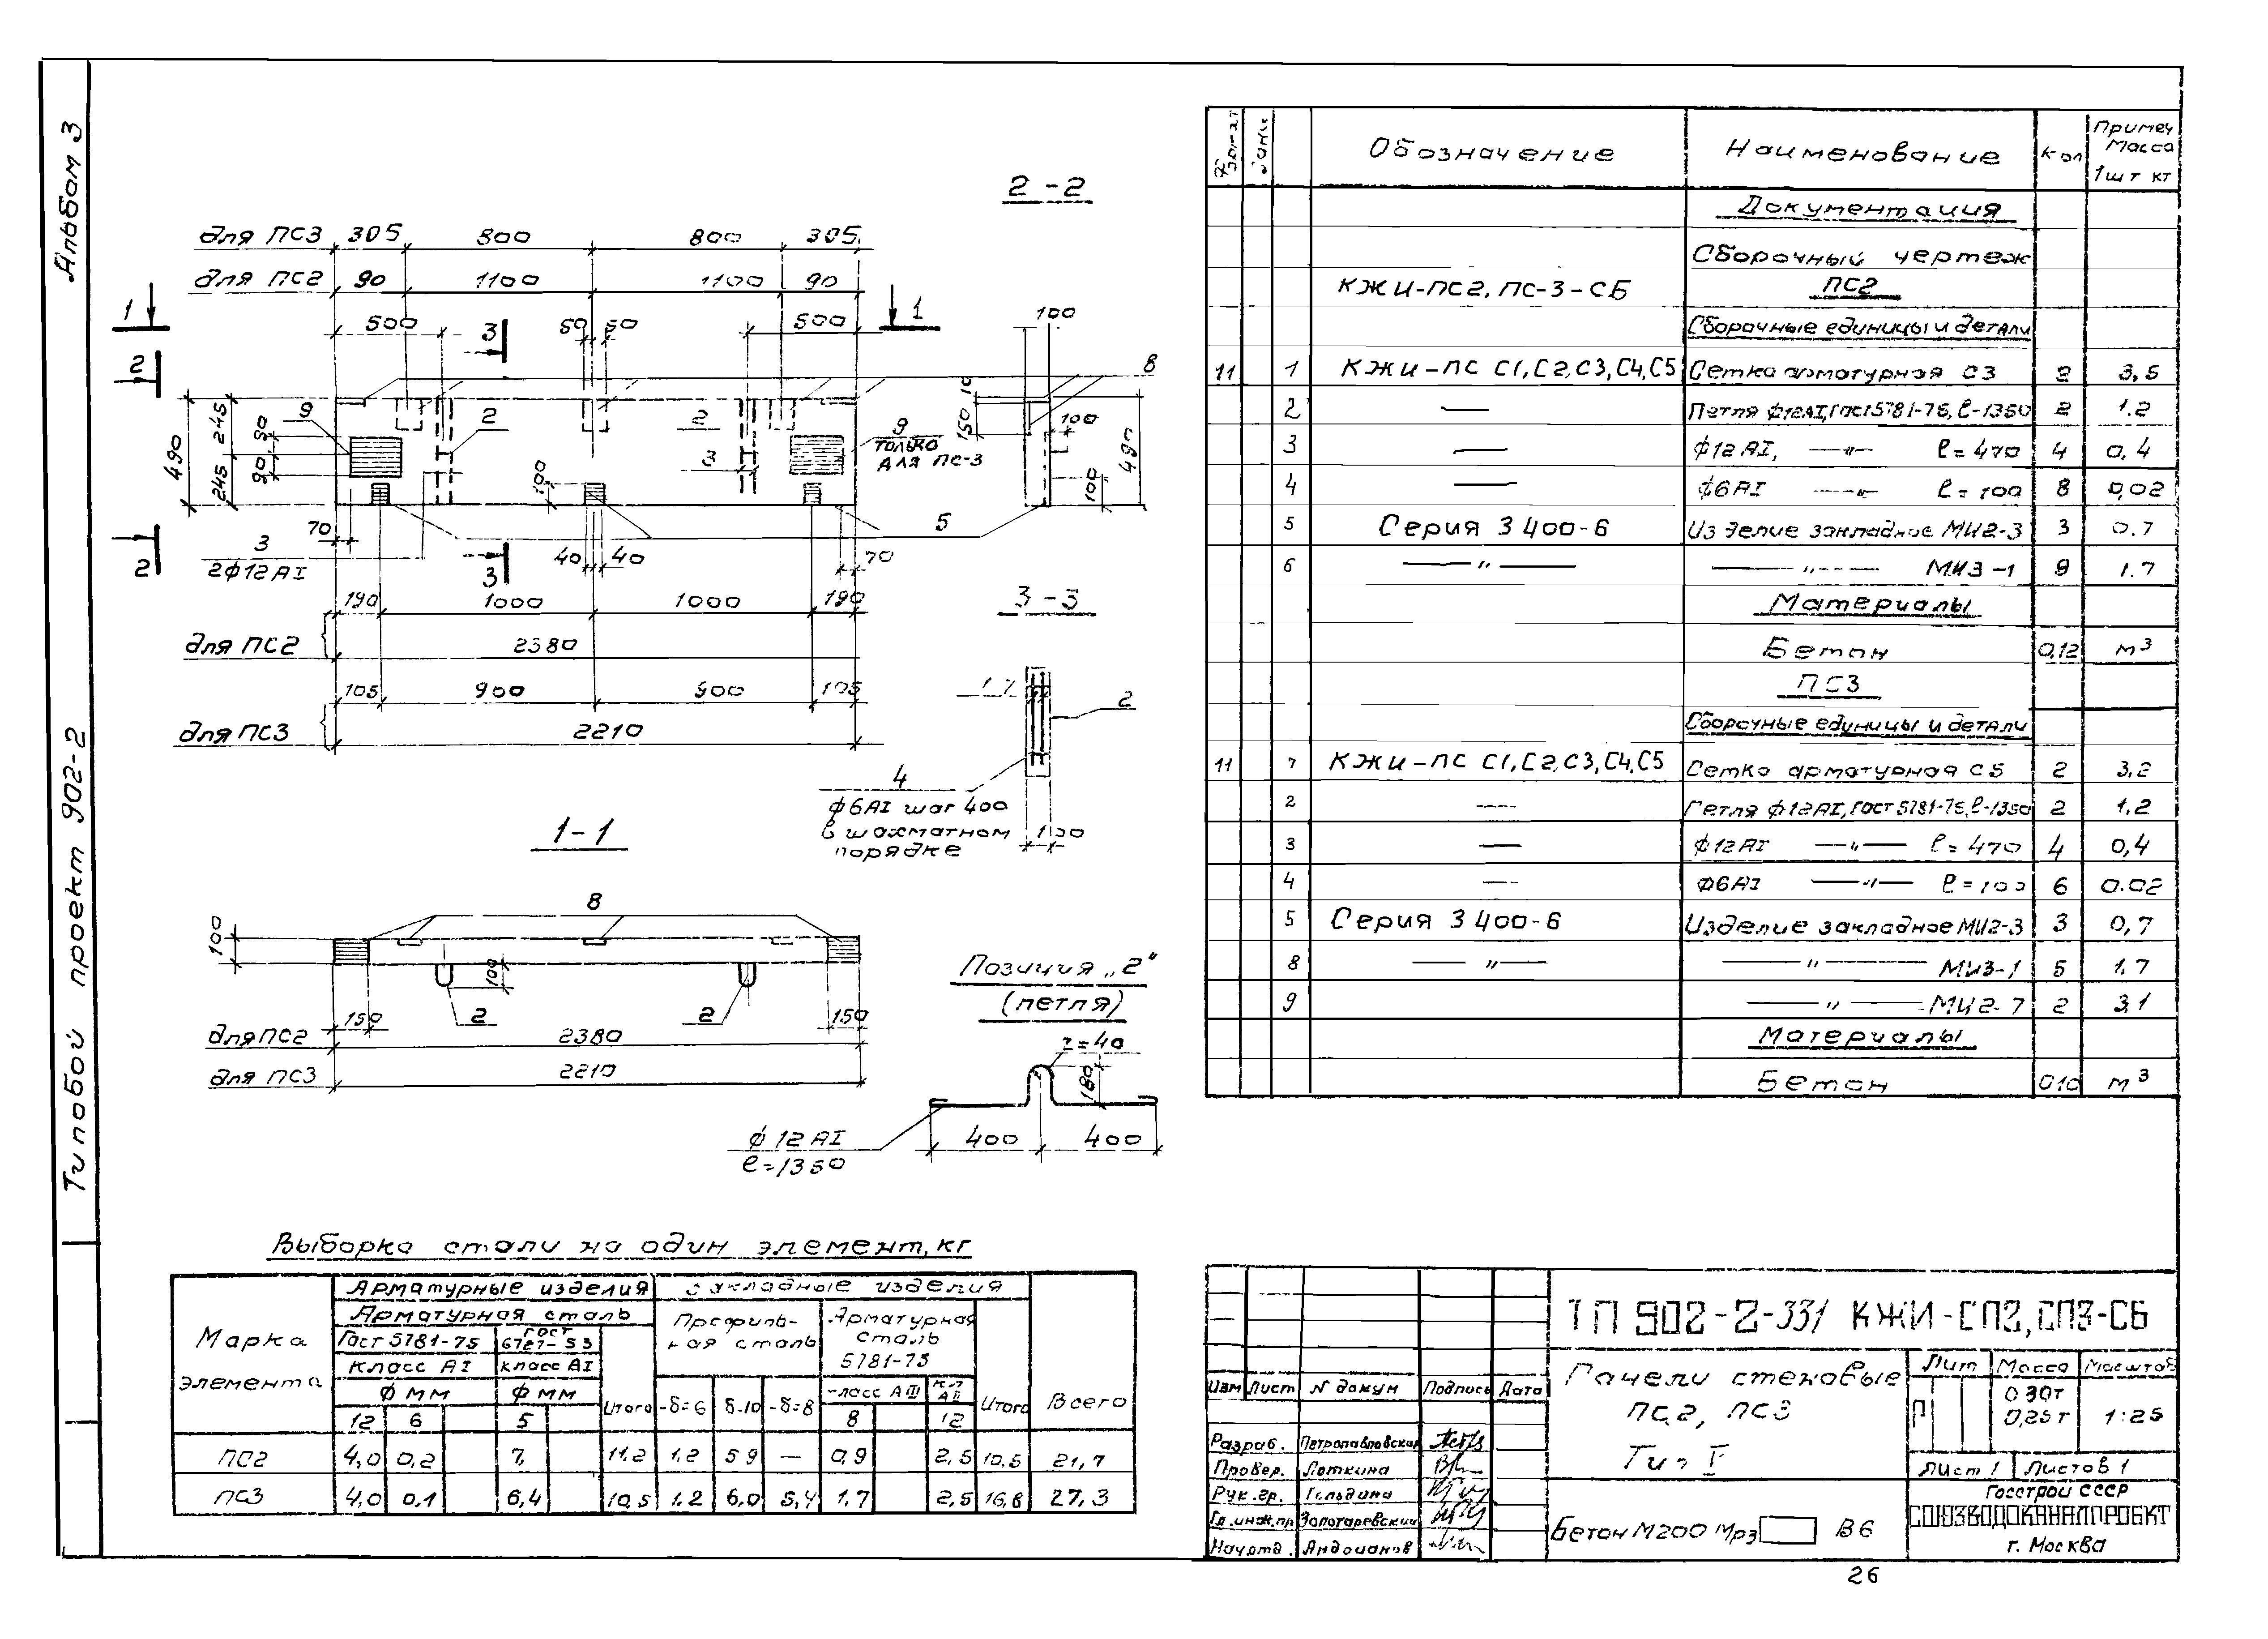 Альбом 3
Типовой проект 902-2
2-2
для ПС3 305 800 800 305
для ПС2 90 1100 1100 90
1 500 3 50 50 500 1
100
2
8
10
150
100
490
100
490
245
245
9
90
90
2
2
9
только
для ПС-3
3
100
5
70
3
2ф12АI
2
3
40 40
70
190 1000 1000 190
для ПС2 2380
105 900 900 105
для ПС3 2210
3-3
17
2
4
ф6АI шаг 400
в шахматном
порядке
100
1-1
8
100
100
2 2
150 150
для ПС2 2380
для ПС3 2210
Позиция „2"
(петля)
r=40
180
ф12АI
ℓ=1350
400 400
Выборка стали на один элемент, кг
Марка
элемента
Арматурные изделия
Закладные изделия
Арматурная сталь
Гост 5781-75
ГОСТ
6727-53
Класс АI
Класс АI
ф мм
ф мм
12 6 5
Итого
Профиль-
ная сталь
-δ=6 δ-10 -δ=8
Арматурная
сталь
5781-75
класс АIII
8 12
Итого
Всего
ПС2 4,0 0,2 7, 11,2 1,2 5 9 — 0,9 2,5 10,5 21,7
ПС3 4,0 0,1 6,4 10,5 1,2 6,0 5,4 1,7 2,5 16,8 27,3
Формат Обозначение Наименование Кол Примеч
Масса
1шт кг
Документация
Сборочный чертеж
КЖИ-ПС2, ПС-3-СБ ПС2
Сборочные единицы и детали
11 1 КЖИ-ПС С1,С2,С3,С4,С5 Сетка арматурная С3 2 3,5
2 — Петля ф12АI, Гост 5781-75, ℓ-1350 2 1.2
3 — ф12АI, —"— ℓ=470 4 0,4
4 — ф6АI —"— ℓ=100 8 0,02
5 Серия 3 400-6 Изделие закладное МИ2-3 3 0.7
6 —"— —"— МИ3-1 1.7
Материалы
Бетон 0,12 м³
ПС3
Сборочные единицы и детали
11 1 КЖИ-ПС С1,С2,С3,С4,С5 Сетка арматурная С5 2 3,2
2 — Петля ф12АI, Гост 5781-75, ℓ-1350 2 1,2
3 — ф12АI —"— ℓ=470 4 0,4
4 — ф6АI —"— ℓ=100 6 0.02
5 Серия 3 400-6 Изделие закладное МИ2-3 3 0,7
8 —"— —"— МИ3-1 5 1,7
9 —"— МИ2-7 2 3,1
Материалы
Бетон 0,10 м³
ТП 902-2-331 КЖИ-СП2,СП3-СБ
Изм Лист N докум Подпись Дата
Разраб. Петропавловская
Провер. Лоткина
Рук.гр. Гольдина
Гл.инж.пр Золотаревский
Нач.отд.
Панели стеновые
ПС2, ПС3
Тип I
Лит Масса Масштаб
Р 0 30т
0,25т 1:25
Лист 1 Листов 1
Бетон М200 Мрз В6
Госстрой СССР
СОЮЗВОДОКАНАЛПРОЕКТ
г. Москва
26